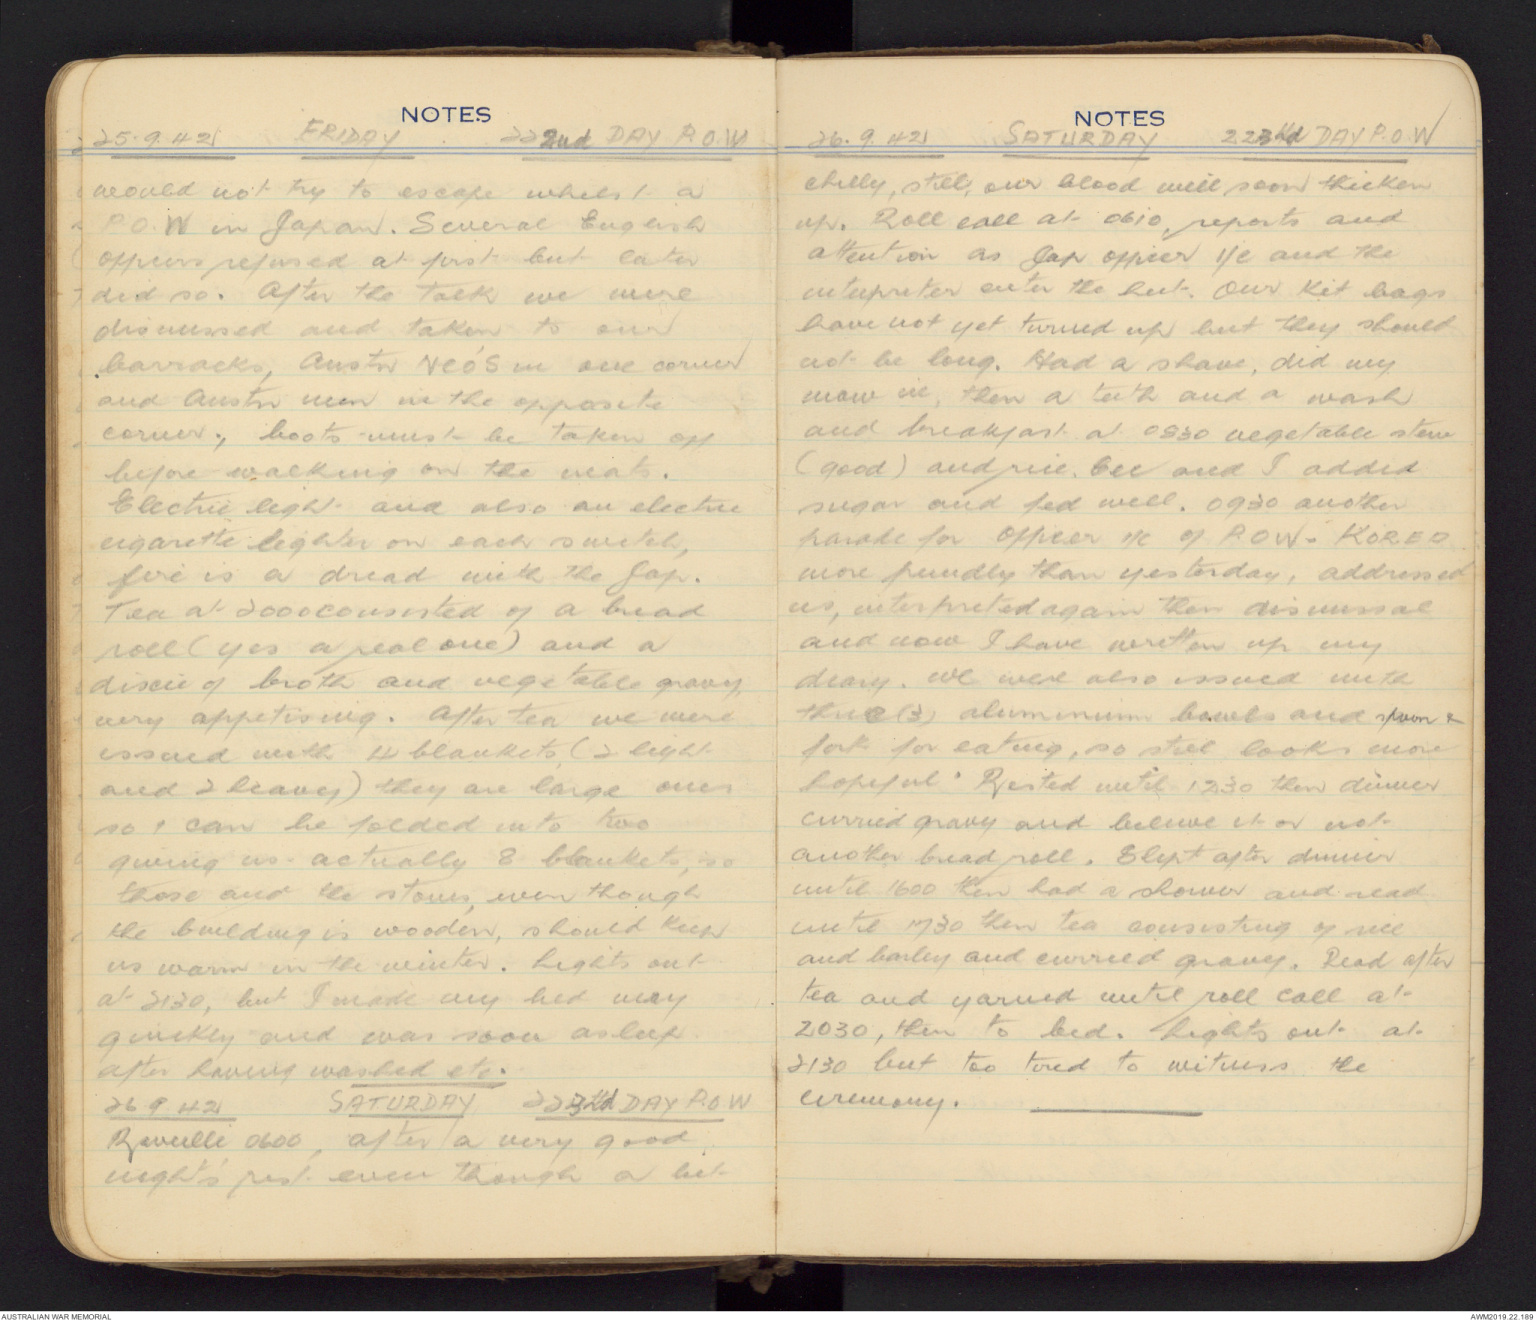 NOTES
25.9.42 FRIDAY 222nd DAY P.O.W
would not try to escape whilst a
P.O.W in Japan. Several English
officers refused at first but later
did so. After the talk we were
dismissed and taken to our
barracks, Austn NCO'S in one corner
and Austn men in the opposite
corner, boots must be taken off
before walking on the mats.
Electric light and also an electric
cigarette lighter on each switch,
fire is a dread with the Jap.
Tea at 2000 consisted of a bread
roll (yes a real one) and a
dixie of broth and vegetable gravy,
very appetising. After tea we were
issued with 4 blankets, (2 light
and 2 heavy) they are large ones
so 1 can be folded into two
giving us actually 8 blankets, so
those and the stoves, even though
the building is wooden, should keep
us warm in the winter. Lights out
at 2130, but I made my bed very
quickly and was soon asleep
after having washed etc.
26.9.42 SATURDAY 223rd DAY P.O.W
Reveille 0600, after a very good
night's rest even though a bit
NOTES
26.9.42 SATURDAY 223rd DAY P.O.W
chilly, still, our blood will soon thicken
up. Roll call at 0610, reports and
attention as Jap officer I/C and the
interpreter enter the hut. Our kit bags
have not yet turned up but they should
not be long. Had a shave, did my
then a teeth and a wash
and breakfast at 0830 vegetable stew
(good) and rice. Cec and I added
sugar and fed well. 0930 another
parade for Officer I/C of P.O.W. KOREA
more friendly than yesterday, addressed
us, interpreted again then dismissal
and now I have written up my
diary. We were also issued with
three (3) aluminium bowls and spoon &
fork for eating, so still looks more
hopeful. Rested until 1230 then dinner
curried gravy and believe it or not
another bread roll. Slept after dinner
until 1600 then had a shower and read
until 1730 then tea consisting of rice
and barley and curried gravy. Read after
tea and yarned until roll call at
2030, then to bed. Lights out at
2130 but too tired to witness the
ceremony.
AUSTRALIAN WAR MEMORIAL
AWM2019.22.189